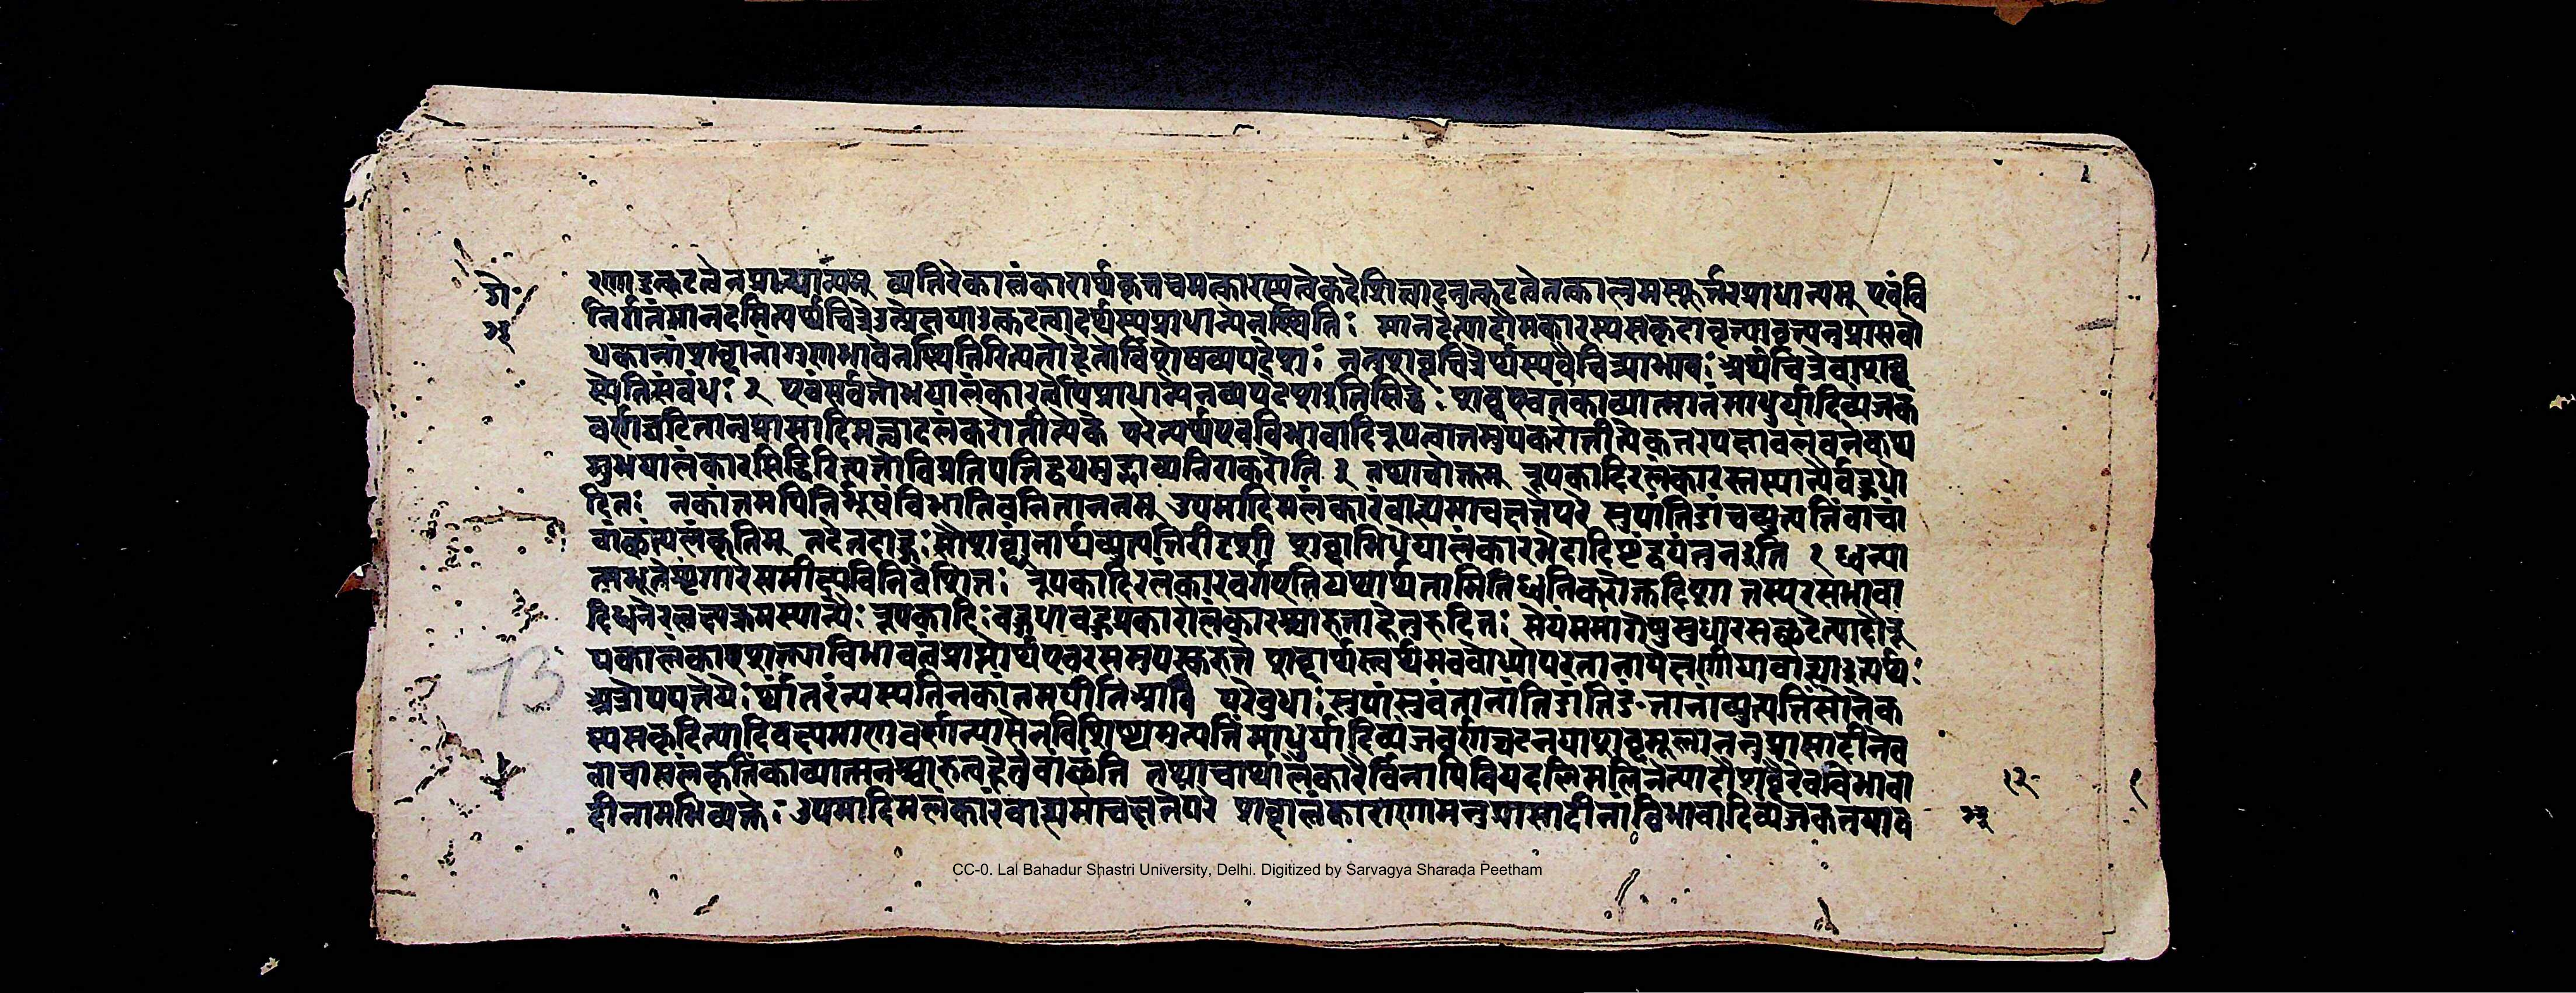 व्यतिरेकालंकारार्थकृतचमत्कारस्यत्वेकदेशित्वादनुत्कटत्वेनत्काल्पमस्फूर्त्तेरप्राधान्यम् एवंवि
निर्गतंमानदमित्यर्थचित्रेउत्प्रेक्षायाउत्कटत्वादर्थस्यप्राधान्येनस्थितिः मानदेत्यादौमकारस्यसकृदावृत्त्यावृत्त्यनुप्रासबो
धकानांशब्दानांगुणभावेनस्थितिरित्यतोहेतोर्विशेषव्यपदेशः ननुशब्दचित्रेर्थस्यवैचित्र्याभावः अर्थचित्रेवाशब्द
स्येतिसंबंधः २ एवंसर्वत्रोभयालंकारत्वेपिप्राधान्येनव्यपदेशइतिसिद्धं शब्दएवतंकाव्यात्मानंमाधुर्यादिव्यंजक
वर्णघटितानुप्रासादिमत्त्वादलंकरोतीत्येके परेत्वर्थएवविभावादिरूपत्वात्तमुपकरोतीत्येकतरपक्षावलंबनेकथ
मुभयालंकारसिद्धिरित्यतोविप्रतिपत्तिद्वयमुद्भाव्यनिराकरोति २ तथाचोक्तम् रूपकादिरलंकारस्तस्यान्यैर्बहुधो
दितः नकांतमपिनिर्भूषंविभातिवनिताननम् उपमादिमलंकारंबाह्यमाचक्षतेपरे सुपांतिङांचव्युत्पत्तिंवाचां
वांछंत्यलंकृतिम् तदेतदाहुःसौशब्द्यंनार्थव्युत्पत्तिरीदृशी शब्दाभिधेयालंकारभेदादिष्टंद्वयंतुनइति १ ध्वन्या
त्मभूतेशृंगारेसमीक्ष्यविनिवेशितः रूपकादिरलंकारवर्गएतियथार्थतामितिध्वनिकारोक्तदिशा तस्यरसभावा
दिध्वनेरलक्ष्यक्रमस्यान्यैः रूपकादिः बहुधाबहुप्रकारोलंकारश्चारुताहेतुरुदितः सेयंममांगेषुसुधारसच्छटेत्यादौरू
पकालंकारशाल्याविभावत्वप्राप्तोर्थएवरसमुपस्कुरुते शब्दार्थस्त्वर्थमवबोध्योपरतानापेक्षणीयाबाह्याइत्यर्थः
अत्रोपपत्तयेर्थांतरंन्यस्यतिनकांतमपीतिआवि परेबुधाः सुपांसुबंतानांतिङांतिङंतानांव्युत्पत्तिंसोनेक
स्यसकृदित्यादिवक्ष्यमाणवर्णन्यासेनविशिष्टामुत्पत्तिंमाधुर्यादिव्यंजकवर्णघटनयाशब्दमूलाननुप्रासादीनेव
वाचामलंकृतिंकाव्यात्मनश्चारुत्वहेतुंवांछंति तथाचार्थालंकारैर्विनापिवियदलिमलिनेत्यादौशब्दैरेवविभावा
दीनामभिव्यक्तेः उपमादिमलंकारंबाह्यमाचक्षतेपरे शब्दालंकाराणामनुप्रासादीनांविभावादिव्यंजकतयाव
१२
73
CC-0. Lal Bahadur Shastri University, Delhi. Digitized by Sarvagya Sharada Peetham